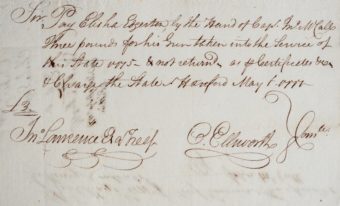 Sir Pay Elisha Edgerton by the Hand of Capt. McCall
Three pounds for his Gun taken into the Service of
this State 1775 & not return'd as Certificates &c
& Charge the State Hartford May 1777
£3
Jno. Lawrence Esq Treasr
O. Ellsworth Comtee